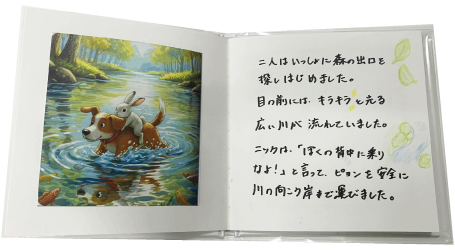 二人はいっしょに森の出口を
探しはじめました。
目の前には、キラキラと光る
広い川が流れていました。
ニックは、「ぼくの背中に乗り
なよ!」と言って、ピョンを安全に
川の向こう岸まで運びました。